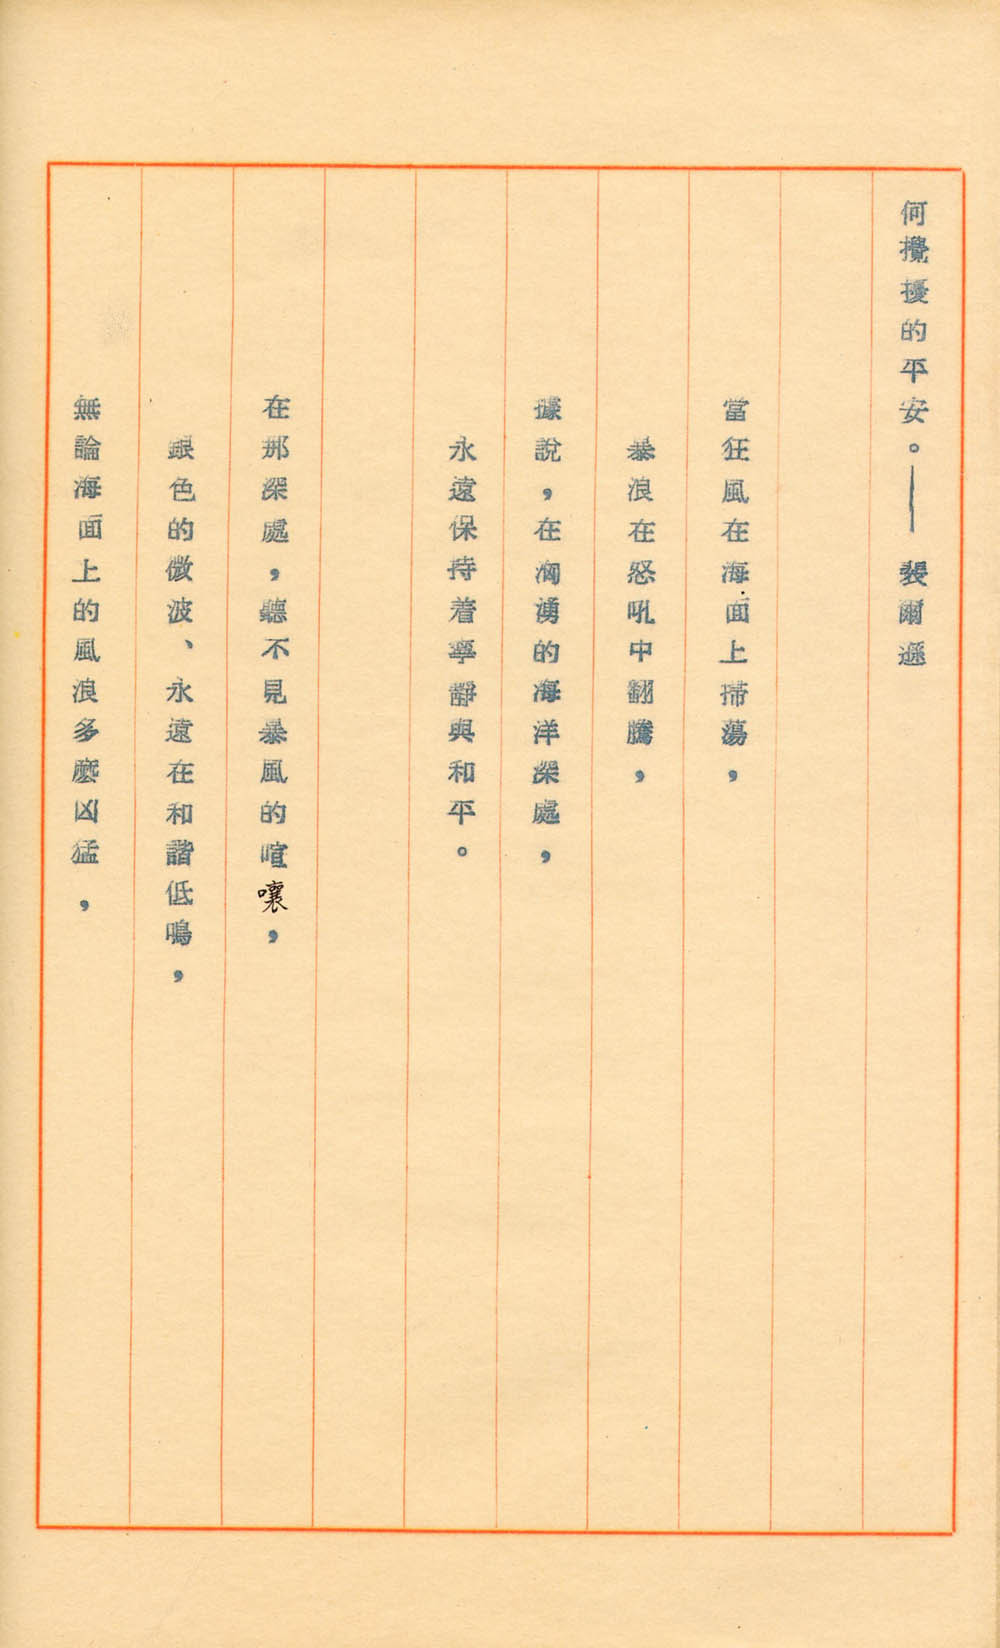 何攪擾的平安。——裴爾遜
當狂風在海面上掃蕩，
暴浪在怒吼中翻騰，
據說，在洶湧的海洋深處，
永遠保持着寧靜與和平。
在那深處，聽不見暴風的喧嚷，
銀色的微波、永遠在和諧低鳴，
無論海面上的風浪多麼凶猛，